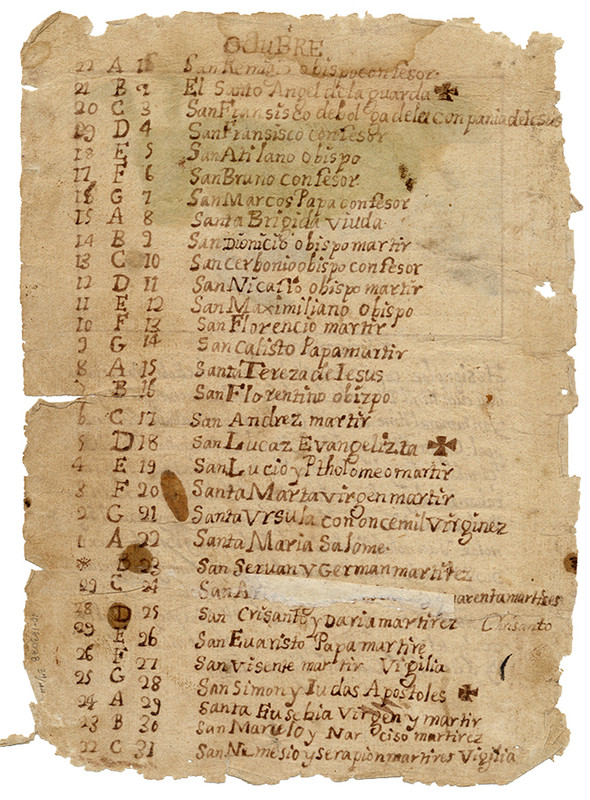 OctuBRE
22 A 1 San Remigio obispo confesor
21 B 2 El Santo Angel de la guarda ✠
20 C 3 San Fransisco de bolga de la conpania de Iesus
19 D 4 San Fransisco confesor
18 E 5 San Atilano obispo
17 F 6 San Bruno confesor
16 G 7 San Marcos Papa confesor
15 A 8 Santa Brigida viuda
14 B 9 San Dionicio obispo martir
13 C 10 San cerbonio obispo confesor
12 D 11 San Nicasio obispo martir
11 E 12 San Maximiliano obispo
10 F 13 San Florencio martir
9 G 14 San calisto Papa martir
8 A 15 Santa Tereza de Iesus
7 B 16 San Florentino obizpo
6 C 17 San Andrez martir
5 D 18 San Lucaz Evangelizta ✠
4 E 19 San Lucio y Ptholomeo martir
3 F 20 Santa Marta virgen martir
2 G 21 Santa Vrsula con oncemil virginez
1 A 22 Santa Maria Salome
* B 23 San Seruan y German martirez
29 C 24 San Ar marenta martires
28 D 25 San Crisanto y Daria martirez Chrisanto
29 E 26 San Euaristo Papa martire
26 F 27 San Visente martir Vigilia
25 G 28 San Simon y Iudas Apostoles ✠
24 A 29 Santa Eusebia Virgen y martir
23 B 30 San Marulo y Narciso martirez
22 C 31 San Nemesio y Serapion martires Vigilia